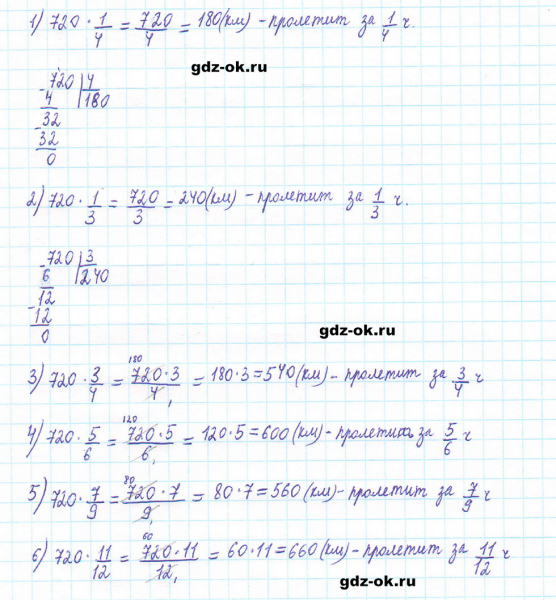 1) 720 · 1/4 = 720/4 = 180 (км) - пролетит за 1/4 ч.
gdz-ok.ru
720 | 4
4 | 180
32
32
0
2) 720 · 1/3 = 720/3 = 240 (км) - пролетит за 1/3 ч.
720 | 3
6 | 240
12
12
0
gdz-ok.ru
3) 720 · 3/4 = 720 · 3/4 = 180 · 3 = 540 (км) - пролетит за 3/4 ч
4) 720 · 5/6 = 720 · 5/6 = 120 · 5 = 600 (км) - пролетит за 5/6 ч
5) 720 · 7/9 = 720 · 7/9 = 80 · 7 = 560 (км) - пролетит за 7/9 ч
6) 720 · 11/12 = 720 · 11/12 = 60 · 11 = 660 (км) - пролетит за 11/12 ч
gdz-ok.ru